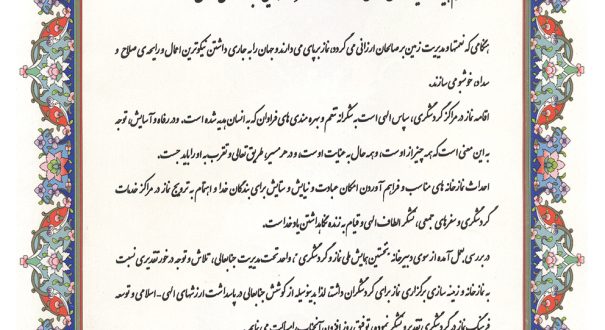 هنگامی که نعمتها و مدیریت زمین بر صالحان ارزانی می گردد، نماز برپای می دارند و جهان را به جاری داشتن نیکوترین اعمال و رایحه ی صلاح و
سداد، خوشبو می سازند.
اقامه نماز در مراکز گردشگری، سپاس الهی است به شکرانه تنعم و بهره مندی های فراوان که به انسان هدیه شده است. و در رفاه و آسایش، توجه
به این معنی است که همه چیز از اوست، و همه حال به عنایت اوست، و در هر مسیر، طریق تعالی و تقرب به او را باید جست.
احداث نمازخانه های مناسب و فراهم آوردن امکان عبادت و نیایش و ستایش برای بندگان خدا و اهتمام به ترویج نماز در مراکز خدمات
گردشگری و سفرهای جمعی، تشکر الطاف الهی و قیام به زنده نگاهداشتن یاد خداست.
در بررسی بعمل آمده از سوی دبیرخانه "نخستین همایش ملی نماز و گردشگری"، واحد تحت مدیریت جنابعالی، تلاش و توجه در خور تقدیری نسبت
به نمازخانه و زمینه سازی برگزاری نماز برای گردشگران داشته لذا بدینوسیله از کوشش جنابعالی در پاسداشت ارزشهای الهی - اسلامی و توسعه
فرهنگ نماز در گردشگری تقدیر و تشکر نموده، توفیق روزافزون آنجناب را مسالت می نمایم.